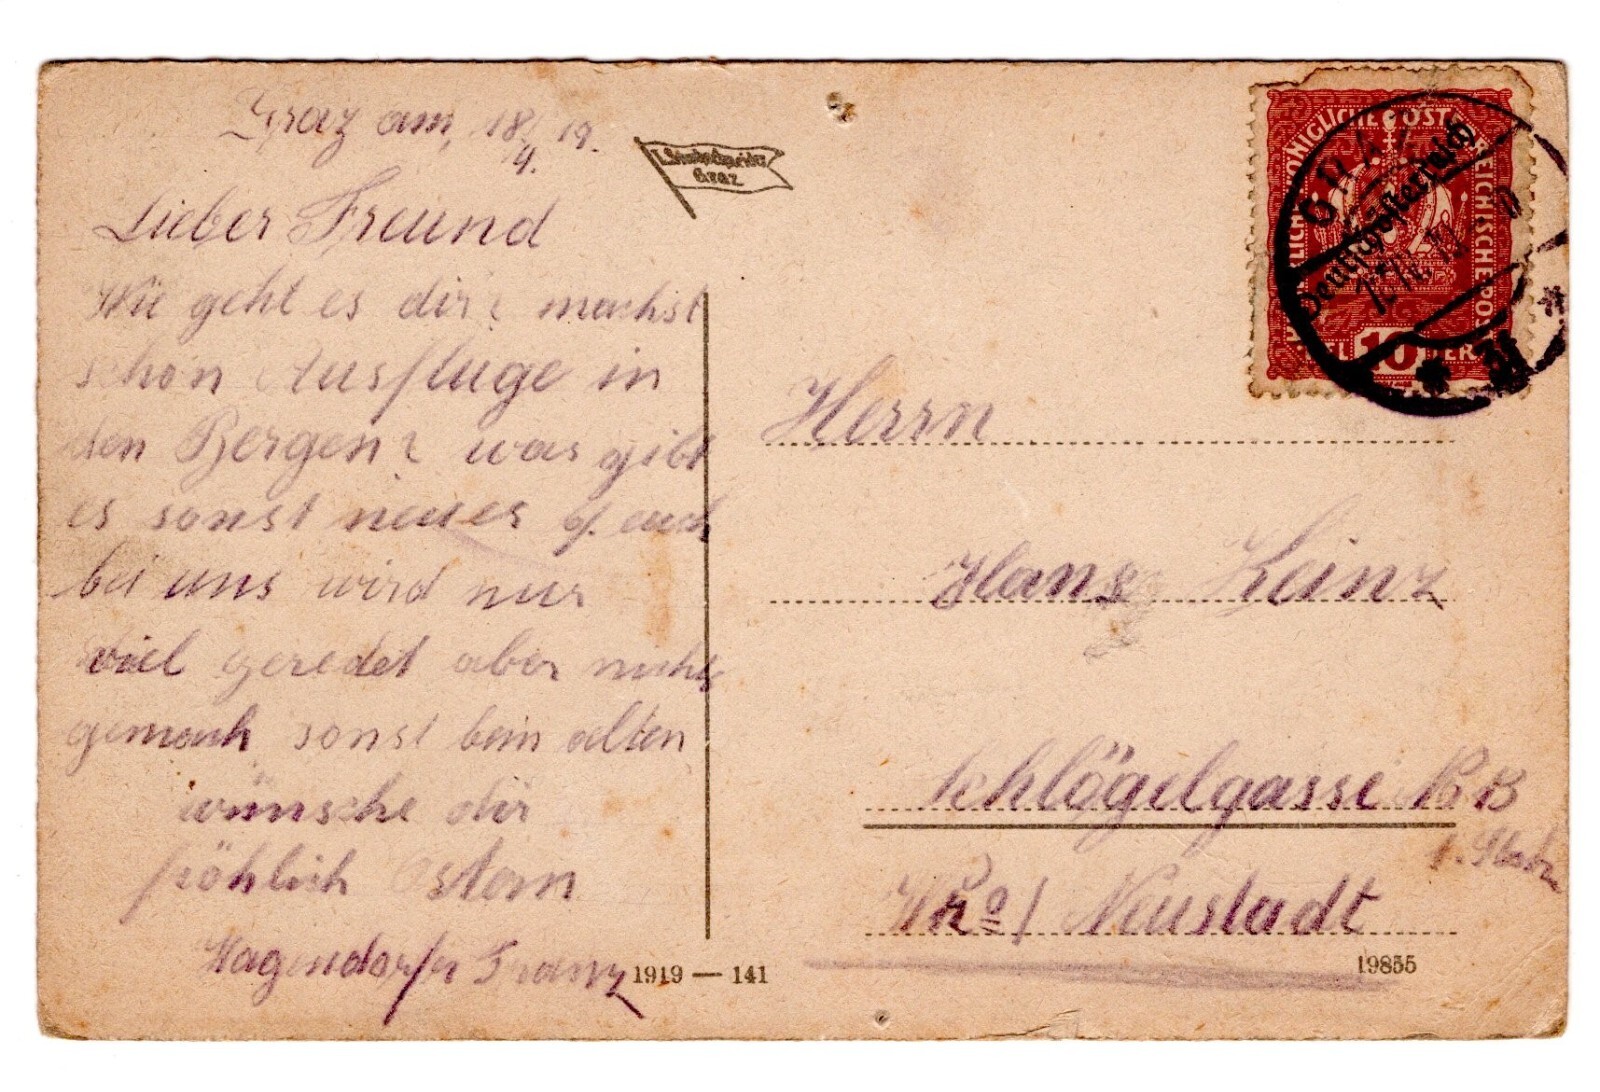 Graz am, 18/4. 19.
Lieber Freund
Wie geht es dir? machst
schön Ausfluge in
den Bergen? was gibt
es sonst neues
bei uns wird nur
viel geredet aber nichts
gemach sonst beim alten
wünsche dir
fröhlich Ostern
Wagendorfer Franz
Graz
1919 — 141
KAISERLICHE KÖNIGLICHE ÖSTERREICHISCHE POST
Deutschösterreich
HELLER 10 HELLER
GRAZ
Herrn
Hans Heinz
Schlögelgasse
Neustadt
19855